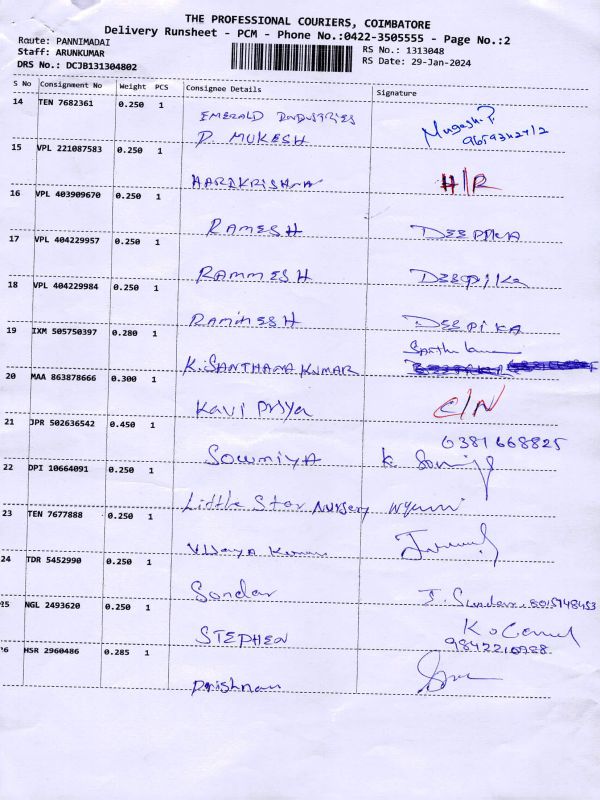 THE PROFESSIONAL COURIERS, COIMBATORE
Delivery Runsheet - PCM - Phone No.:0422-3505555 - Page No.:2
Route: PANNIMADAI
Staff: ARUNKUMAR
DRS No.: DCJB131304802
RS No.: 1313048
RS Date: 29-Jan-2024
S No Consignment No Weight PCS Consignee Details Signature
14 TEN 7682361 0.250 1
EMERALD INDUSTRIES
P. MUKESH
Mugesh.P
15 VPL 221087583 0.250 1
HARIKRISHNA H/R
16 VPL 403909670 0.250 1
RAMESH DEEPIKA
17 VPL 404229957 0.250 1
RAMMESH Deepika
18 VPL 404229984 0.250 1
RAMMESH DEEPIKA
19 IXM 505750397 0.280 1
K. SANTHANA KUMAR
20 MAA 863878666 0.300 1
Kavi Priya C/N
21 JPR 502636542 0.450 1
6381668825
SOWMIYA
22 DPI 10664091 0.250 1
Little Star Nursery
23 TEN 7677888 0.250 1
Vijaya Kumar
24 TDR 5452990 0.250 1
Sundar J. Sundar 8015748453
25 NGL 2493620 0.250 1
STEPHEN
9842210788
26 HSR 2960486 0.285 1